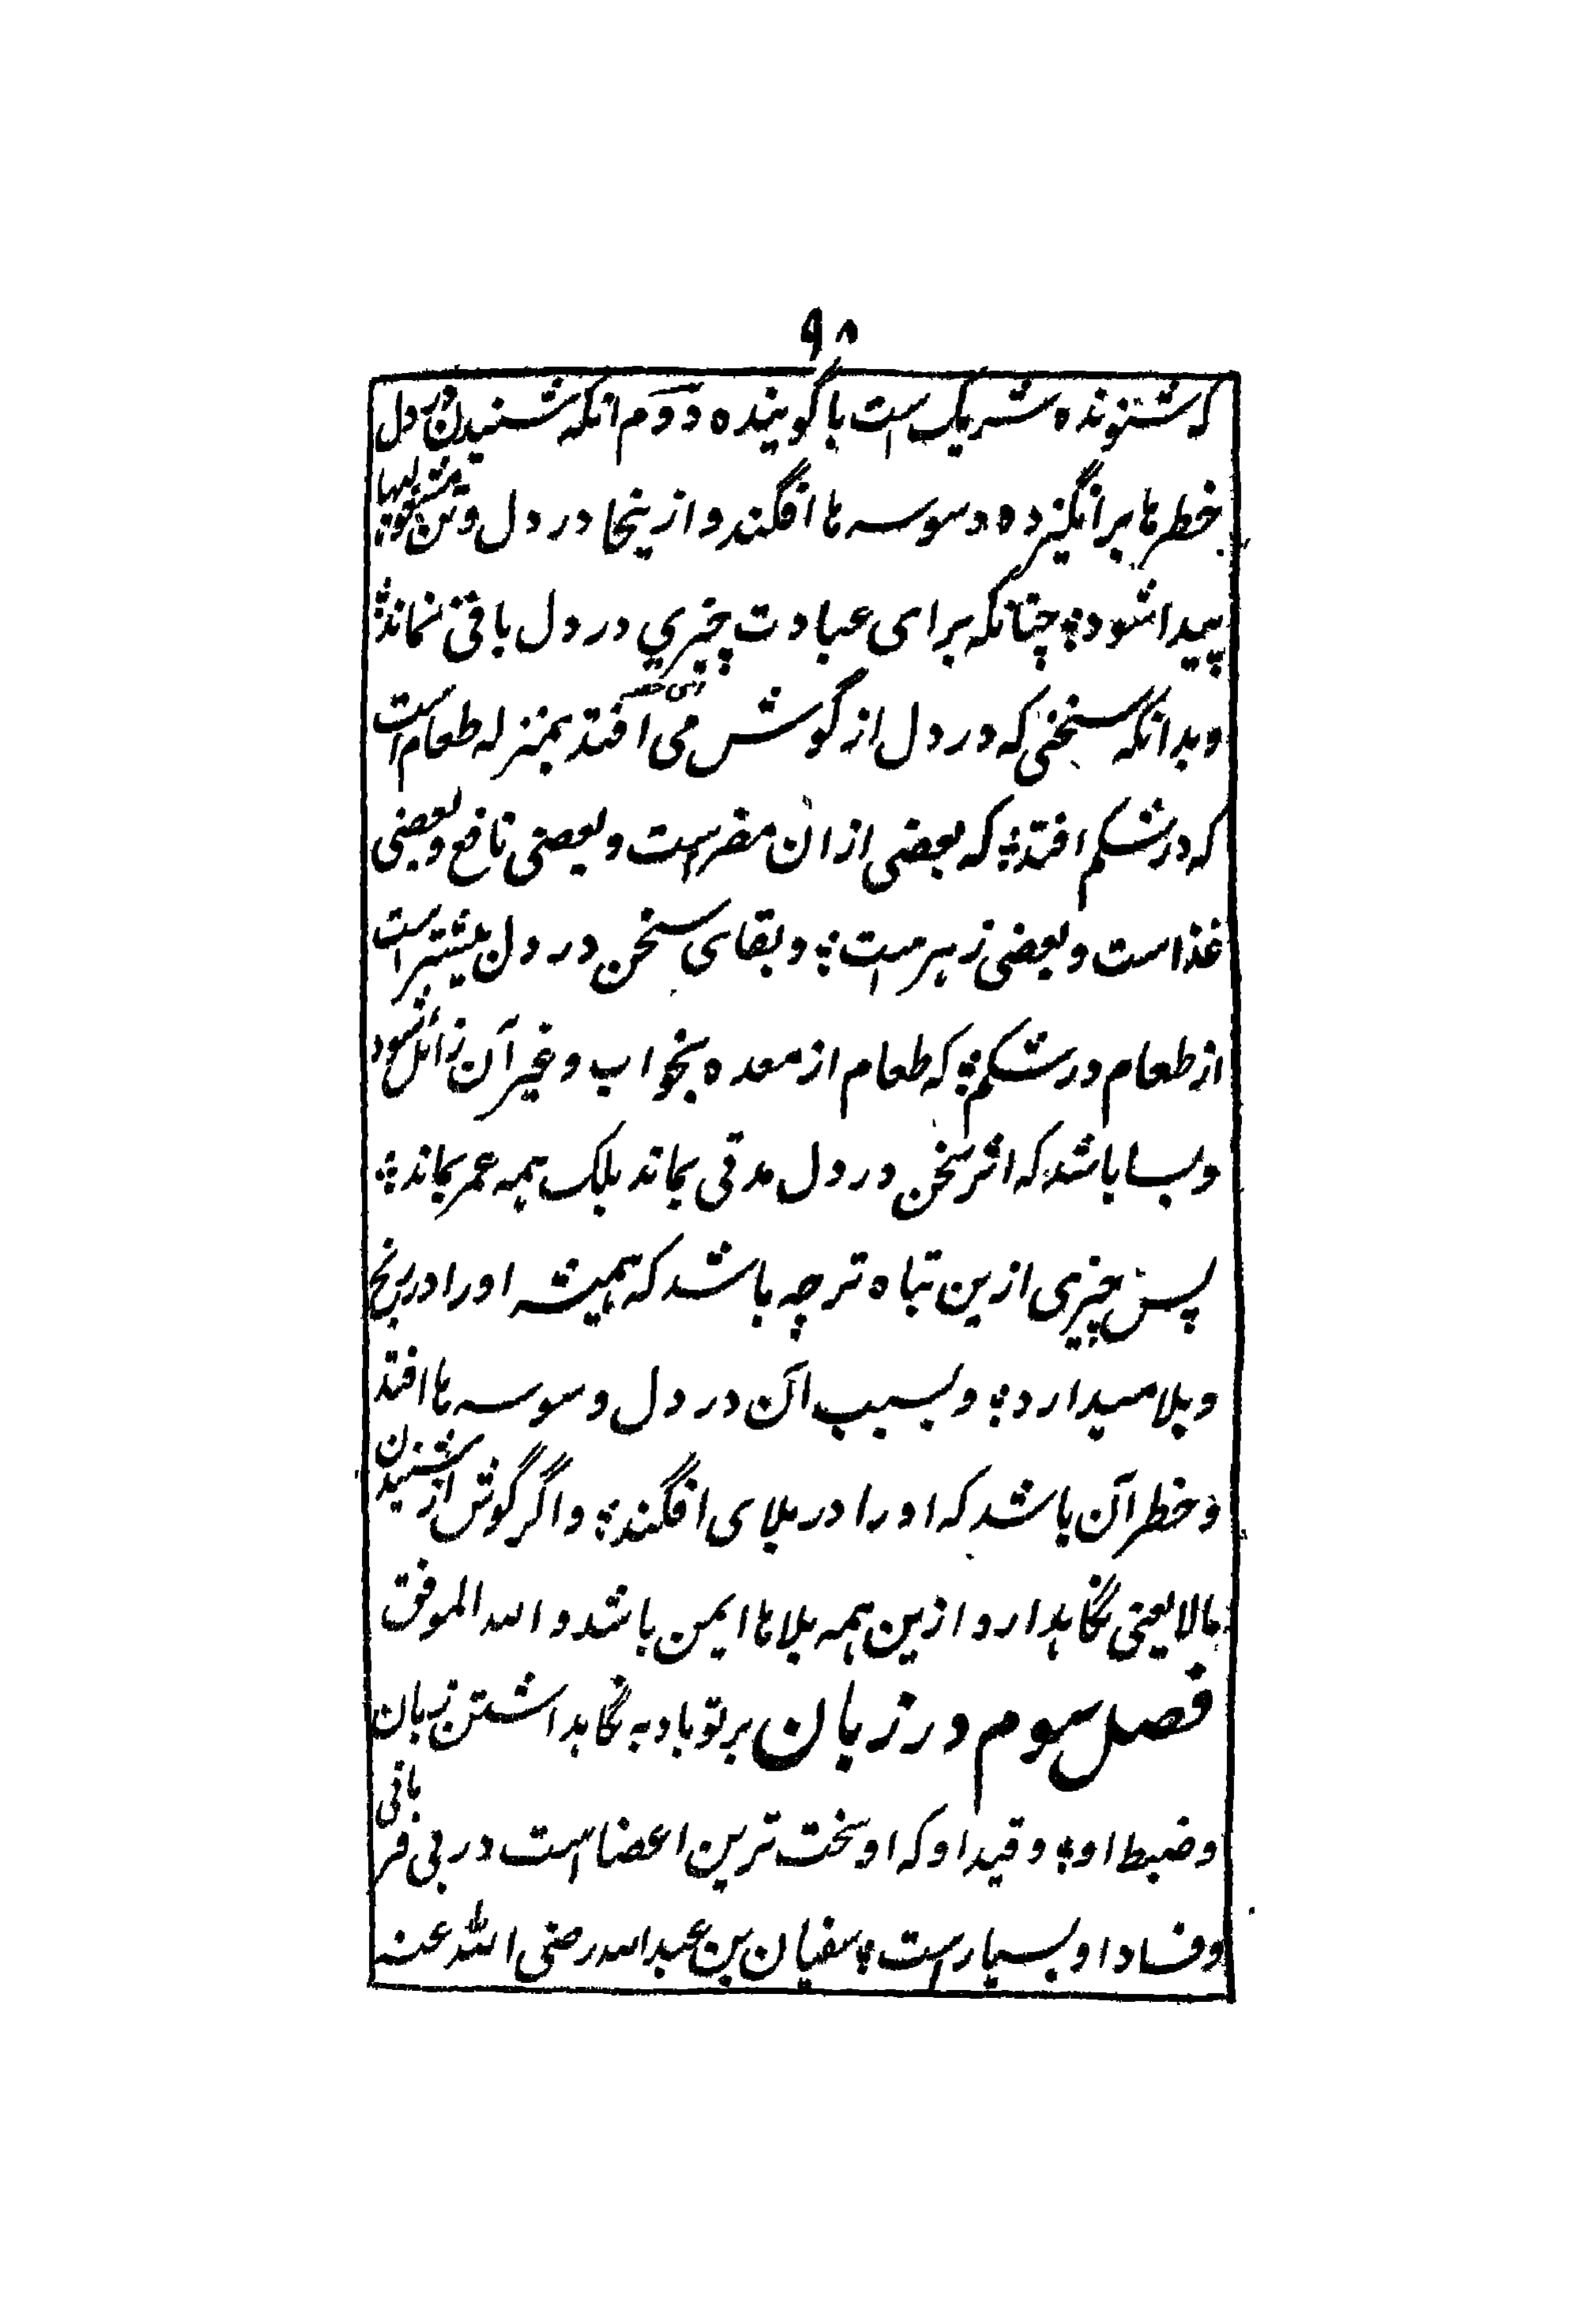 ۹۸
که شنونده شریک است با گوینده دوم انکه شنیدن در دل
خطرها برانگیزده وسوسه ها افگند و ازینجا در دل و تن مشغولیها
پیدا شود؛ چنانکه برای عبادت چیزي در دل باقی نماند؛
و بدانکه سخنی که در دل از گوش می افتد بمنزله طعام است
که در شکم افتد؛ که بعضی از ان مضر است و بعضی نافع و بعضی
غذا است و بعضی زهر است؛ و بقای سخن در دل بیشتر است
از طعام در شکم؛ که طعام از معده بخواب و غیر آن زائل شود
و بسا باشد که اثر سخن در دل مدتی بماند بلک همه عمر بماند؛
پس چیزی ازین تباه تر چه باشد که همیشه او را در رنج
و بلا میدارد؛ و بسبب آن در دل وسوسه ها افتد
و خطر آن باشد که او را در بلای افگند؛ و اگر گوش از شنیدن
مالایعنی نگاهدارد ازین همه بلاها ایمن باشد و الله الموفق
فصل سوم در زبان بر تو باد به نگاهداشتن زبان
و ضبط او؛ و قید او که او سخت ترین اعضا است در بی فرمانی
و فساد او بسیار است؛ سفیان بن عبدالله رضی الله عنه